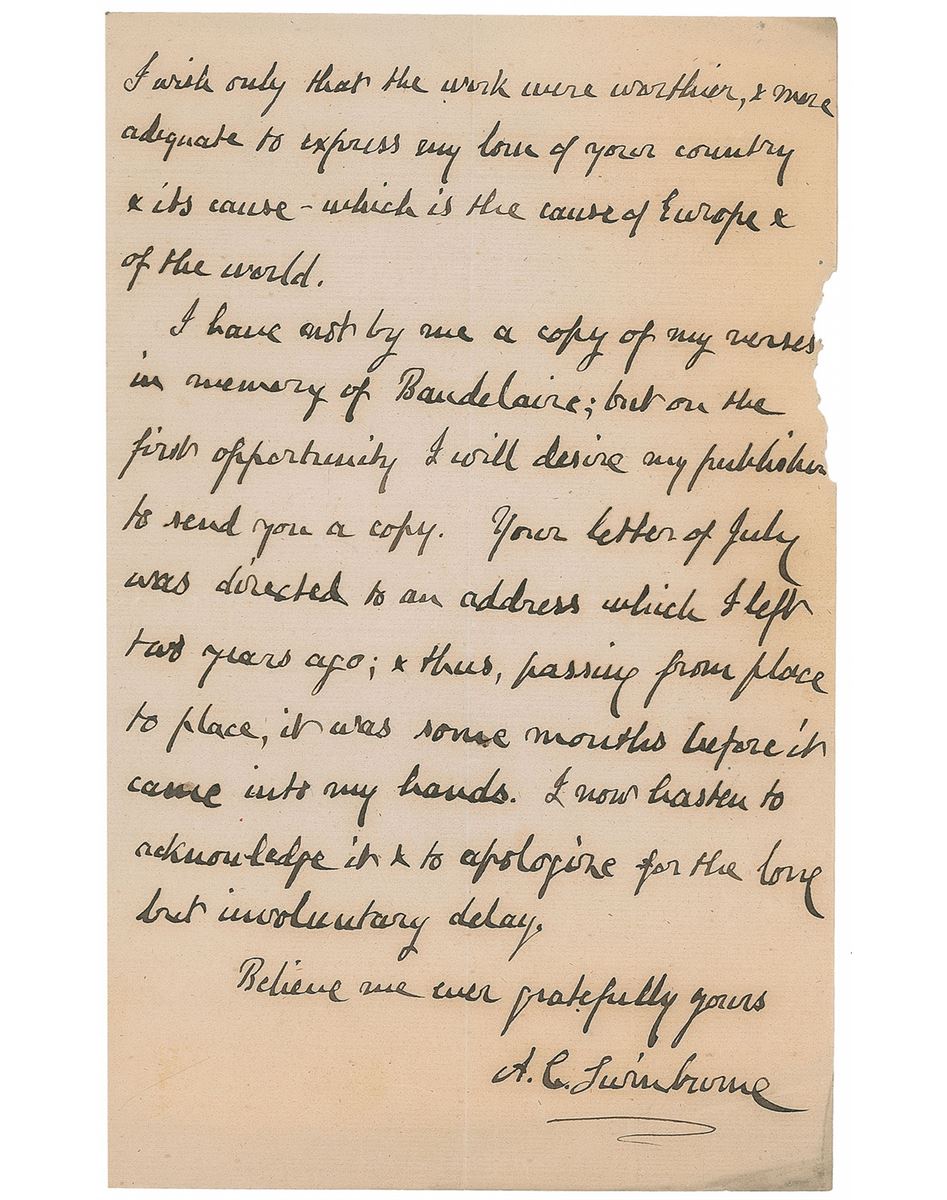 I wish only that the work were worthier, & more
adequate to express my love of your country
& its cause – which is the cause of Europe &
of the world.
I have not by me a copy of my verses
in memory of Baudelaire; but on the
first opportunity I will desire my publisher
to send you a copy. Your letter of July
was directed to an address which I left
two years ago; & thus, passing from place
to place, it was some months before it
came into my hands. I now hasten to
acknowledge it & to apologize for the long
but involuntary delay.
Believe me ever gratefully yours
A. C. Swinburne